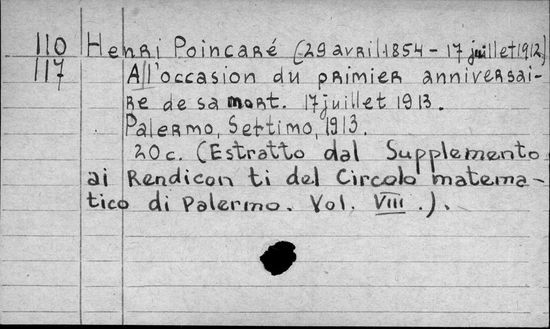 110 Henri Poincaré (29 avril 1854 - 17 juillet 1912)
117 All'occasion du primier anniversai-
re de sa mort. 17 juillet 1913.
Palermo, Settimo, 1913.
20c. (Estratto dal Supplemento
ai Rendicon ti del Circolo matema-
tico di Palermo. Vol. VIII.).